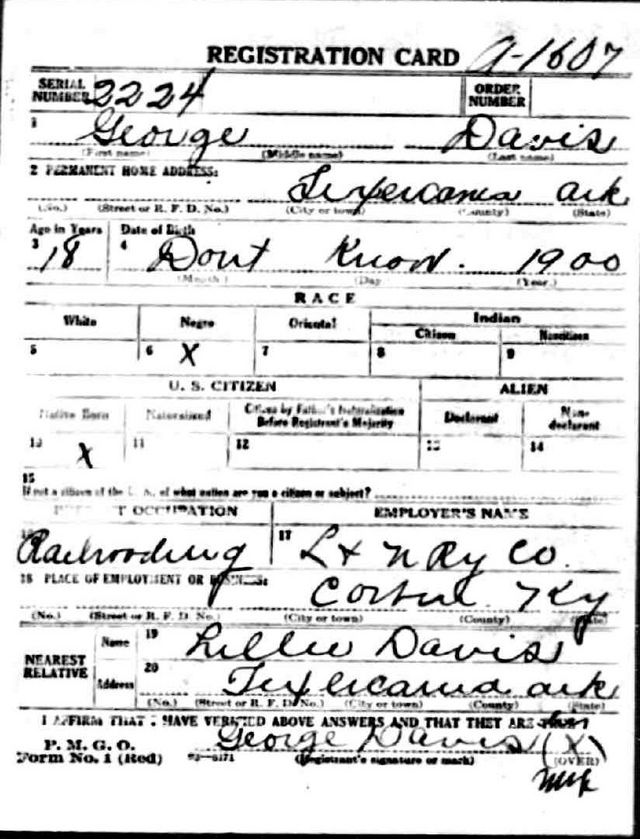 REGISTRATION CARD A-1607
SERIAL NUMBER 2224 ORDER NUMBER
1 George Davis
(First name) (Middle name) (Last name)
2 PERMANENT HOME ADDRESS:
Texercania Ark
(No.) (Street or R. F. D. No.) (City or town) (County) (State)
Age in Years Date of Birth
3 18 4 Dont Know. 1900
(Month) (Day) (Year.)
RACE
White Negro Oriental Indian
Citizen Noncitizen
5 6 X 7 8 9
U. S. CITIZEN ALIEN
Native Born Naturalized Citizen by Father's Naturalization Before Registrant's Majority Declarant Non-declarant
10 X 11 12 13 14
15
If not a citizen of the U. S. of what nation are you a citizen or subject?
PRESENT OCCUPATION EMPLOYER'S NAME
Railroading 17 L + N Ry Co.
18 PLACE OF EMPLOYMENT OR BUSINESS:
Ky
(No.) (Street or R. F. D. No.) (City or town) (County) (State)
NEAREST RELATIVE Name 19 Lillie Davis
Address 20 Texlicania ark
(No.) (Street or R. F. D. No.) (City or town) (County) (State)
I AFFIRM THAT I HAVE VERIFIED ABOVE ANSWERS AND THAT THEY ARE TRUE
P. M. G. O.
Form No. 1 (Red) George Davis (X)
03-6171 (Registrant's signature or mark) (OVER)